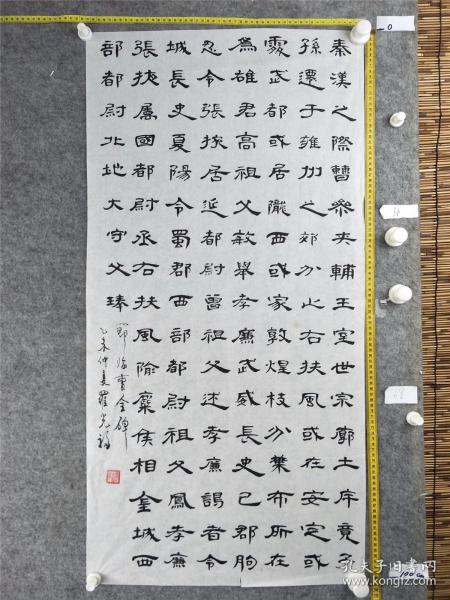 秦漢之際曹參夾輔王室世宗廓土斥竟子
孫遷于雍州之郊分止右扶風或在安定或
處武都或居隴西或家敦煌枝分葉布所在
為雄君高祖父敏舉孝廉武威長史巴郡朐
忍令張掖居延都尉曾祖父述孝廉謁者令
城長史夏陽令蜀郡西部都尉祖父鳳孝廉
張掖屬國都尉丞右扶風隃糜侯相金城西
部都尉北地大守父琫
節臨曹全碑
乙未仲夏羅光
孔夫子旧书网
www.kongfz.com